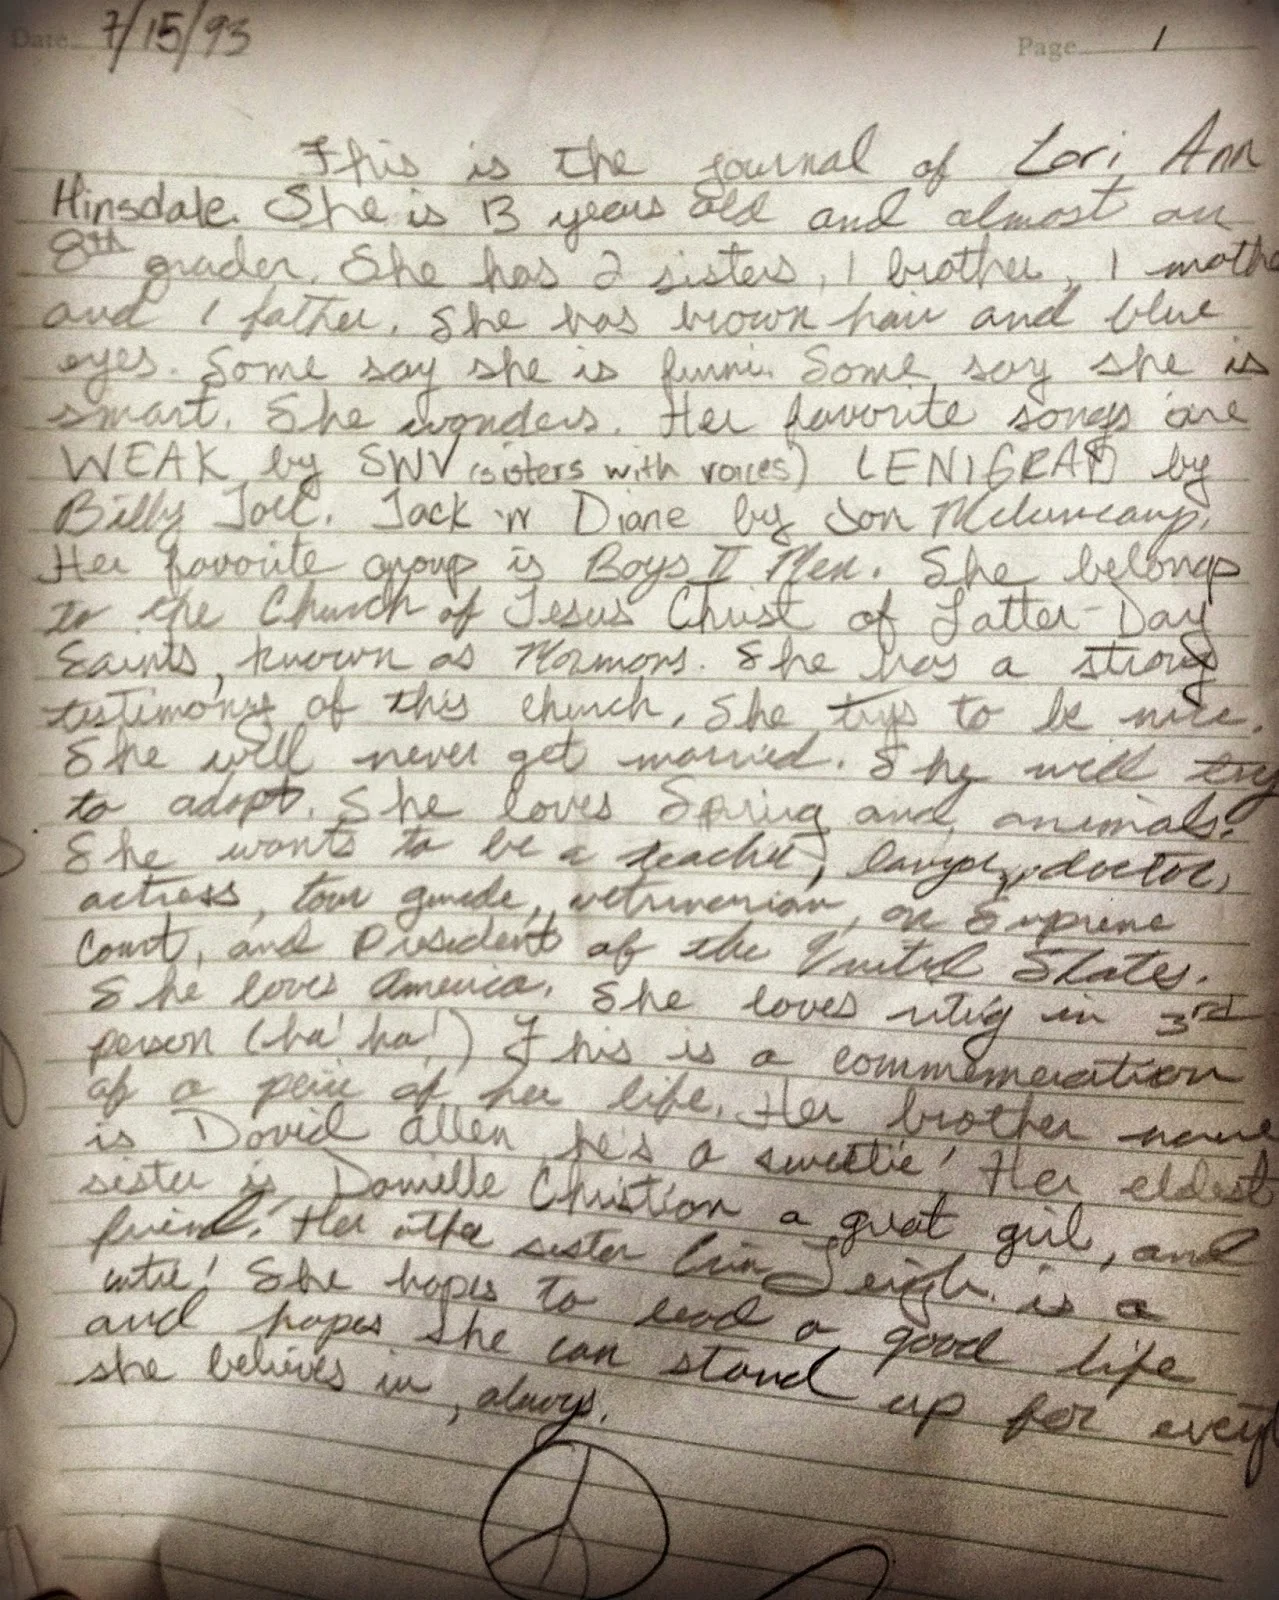 Date 7/15/93
Page 1
This is the journal of Lori Ann
Hinsdale. She is 13 years old and almost an
8th grader. She has 2 sisters, 1 brother, 1 mothe
and 1 father. She has brown hair and blue
eyes. Some say she is funni. Some say she is
smart. She wonders. Her favorite songs are
WEAK by SWV (sisters with voices) LENIGRAD by
Billy Joel. Jack 'n Diane by Jon Meluncamp.
Her favorite group is Boys II Men. She belongs
to the Church of Jesus Christ of Latter-Day
Saints, known as Mormons. She has a strong
testimony of this church. She trys to be nice.
She will never get married. She will try
to adopt. She loves Spring and animals.
She wants to be a teacher, lawyer, doctor,
actress, tour guide, vetrinarian, on Supreme
Court, and President of the United States.
She loves America. She loves in 3rd
person (ha! ha!) This is a commemeration
of a peice of her life. Her brother name
is David Allen he's a sweetie! Her eldest
sister is Danielle Christian a great girl, and
friend. Her other sister Leigh is a
cutie! She hopes to lead a good life
and hopes she can stand up for every
she believes in, always.